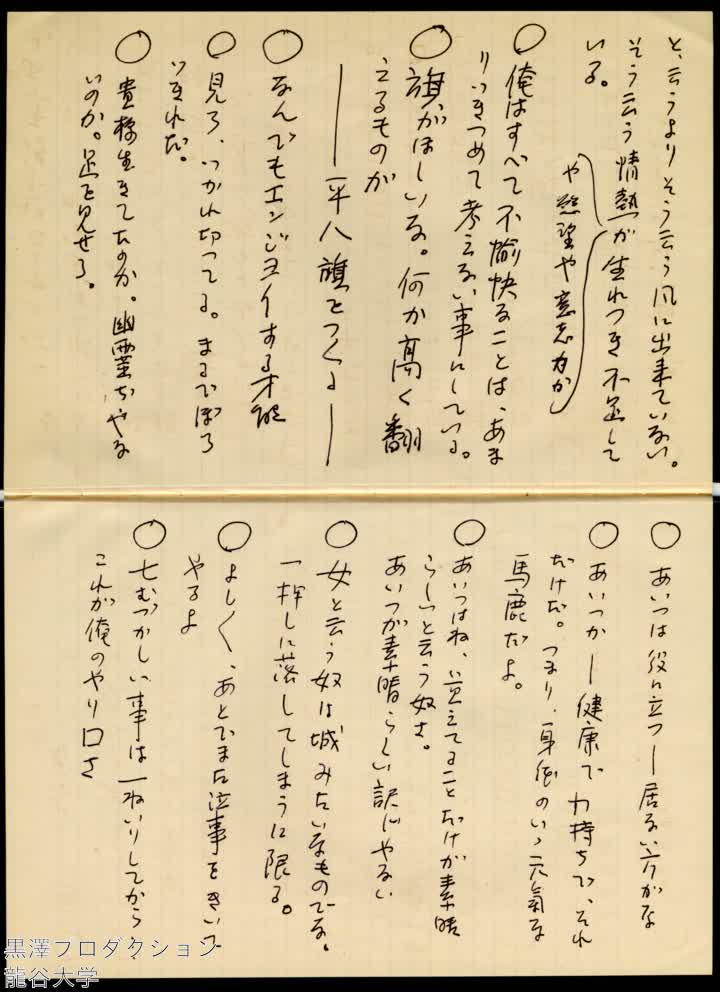 と、云うよりそう云う風に出来ていない。
そう云う情熱が生れつき不足して
いる。
や慾望や意志力が
○ 俺はすべて不愉快なことは、あま
りつきつめて考えない事にしている。
○ 旗がほしいな。何か高く翻
えるものが
――平八旗をつくる――
○ なんでもエンジョイする才能
○ 見ろ、つかれ切ってる。まるでぼろ
いのか。足を見せろ。
○ 貴様生きてたのか。幽霊ぢゃな
○ あいつは役に立つ―居ない方がな
○ あいつか―健康で力持ちで、それ
だけだ。つまり、身体のいゝ元気な
馬鹿だよ。
○ あいつはね、見えてることだけが素晴
らしいと云う奴さ。
あいつが素晴らしい訳じゃない
○ 女と云う奴は城みたいなものでな。
一押しに落してしまうに限る。
○ よし〱、あとでまた泣事をきいて
やるよ
○ 七むづかしい事は一ねいりしてから
これが俺のやり口さ
黒澤プロダクション
龍谷大学